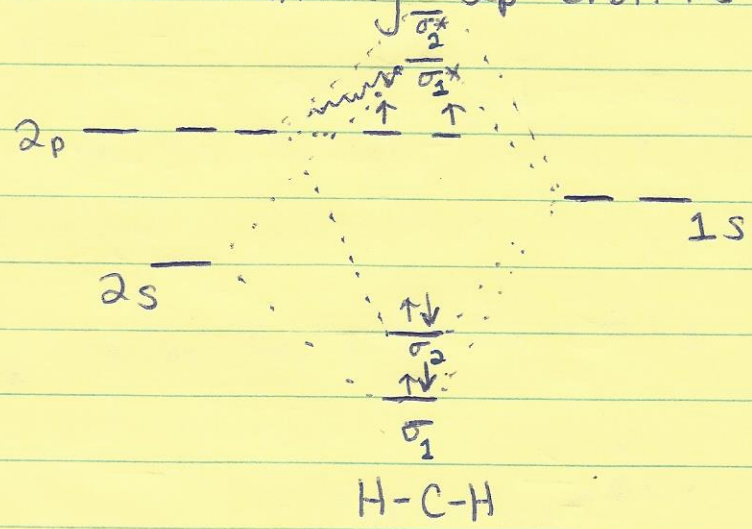 σ₂*
σ₁*
↑ ↑
2p
1s
2s
↑↓
σ₂
↑↓
σ₁
H-C-H